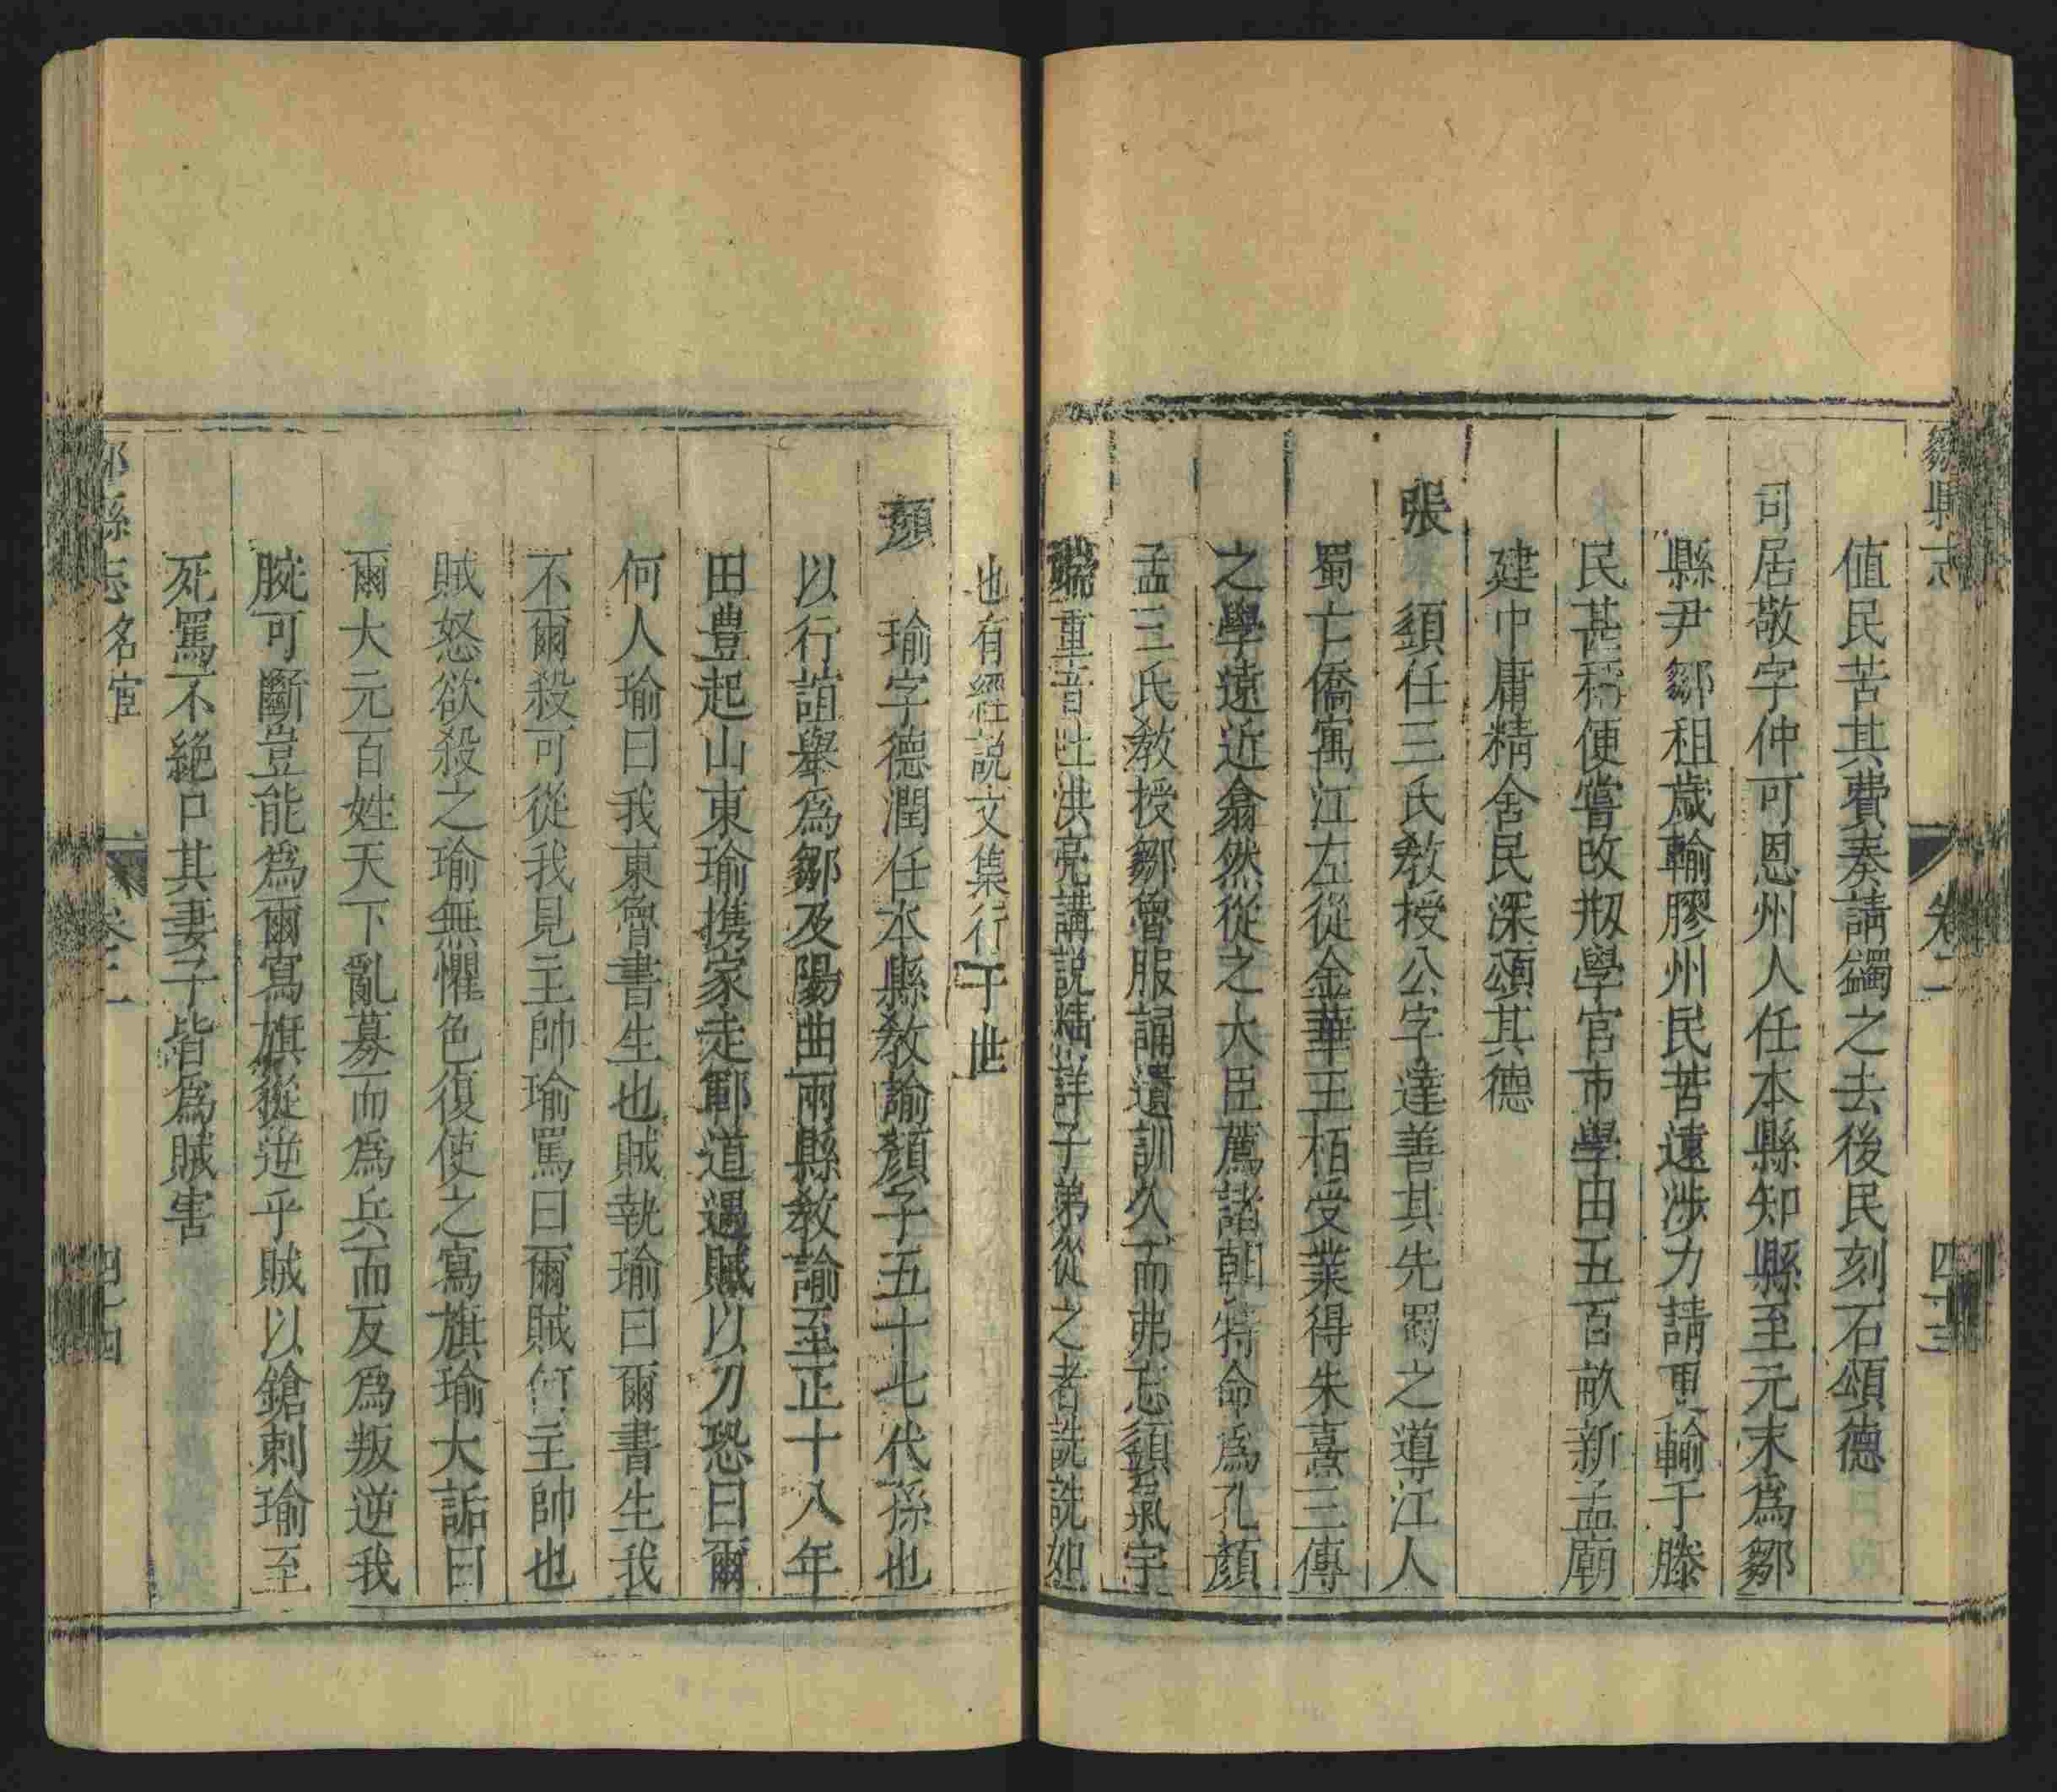 鄒縣志 卷二 四十三
值民苦其費奏請蠲之去後民刻石頌德
司居敬字仲可恩州人任本縣知縣至元末為鄒
縣尹鄒租歲輸膠州民苦遠涉力請更輸于滕
民甚稱便嘗改剏學官市學田五百畝新孟廟
建中庸精舍民深頌其德
張 䇓任三氏教授公字達善其先蜀之導江人
蜀亡僑寓江左從金華王栢受業得朱熹三傳
之學遠近翕然從之大臣薦諸朝特命為孔顏
孟三氏教授鄒魯服誦遺訓久而弗忘䇓氣宇
端重音吐洪亮講說精詳子弟從之者詵詵如
也有經說文集行于世
顏 瑜字德潤任本縣教諭顏子五十七代孫也
以行誼舉為鄒及陽曲兩縣教諭至正十八年
田豊起山東瑜携家走鄆道遇賊以刀恐曰爾
何人瑜曰我東魯書生也賊執瑜曰爾書生我
不爾殺可從我見主帥瑜罵曰爾賊何主帥也
賊怒欲殺之瑜無懼色復使之寫旗瑜大詬曰
爾大元百姓天下亂募而為兵而反為叛逆我
腕可斷豈能為爾寫旗從逆乎賊以鎗刺瑜至
死罵不絕口其妻子皆為賊害
鄒縣志 名宦 卷二 四十四